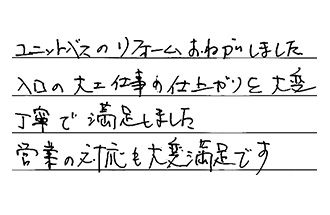 ユニットバスのリフォームおねがいしました
入口の大工仕事の仕上がりも大変
丁寧で満足しました
営業の対応も大変満足です